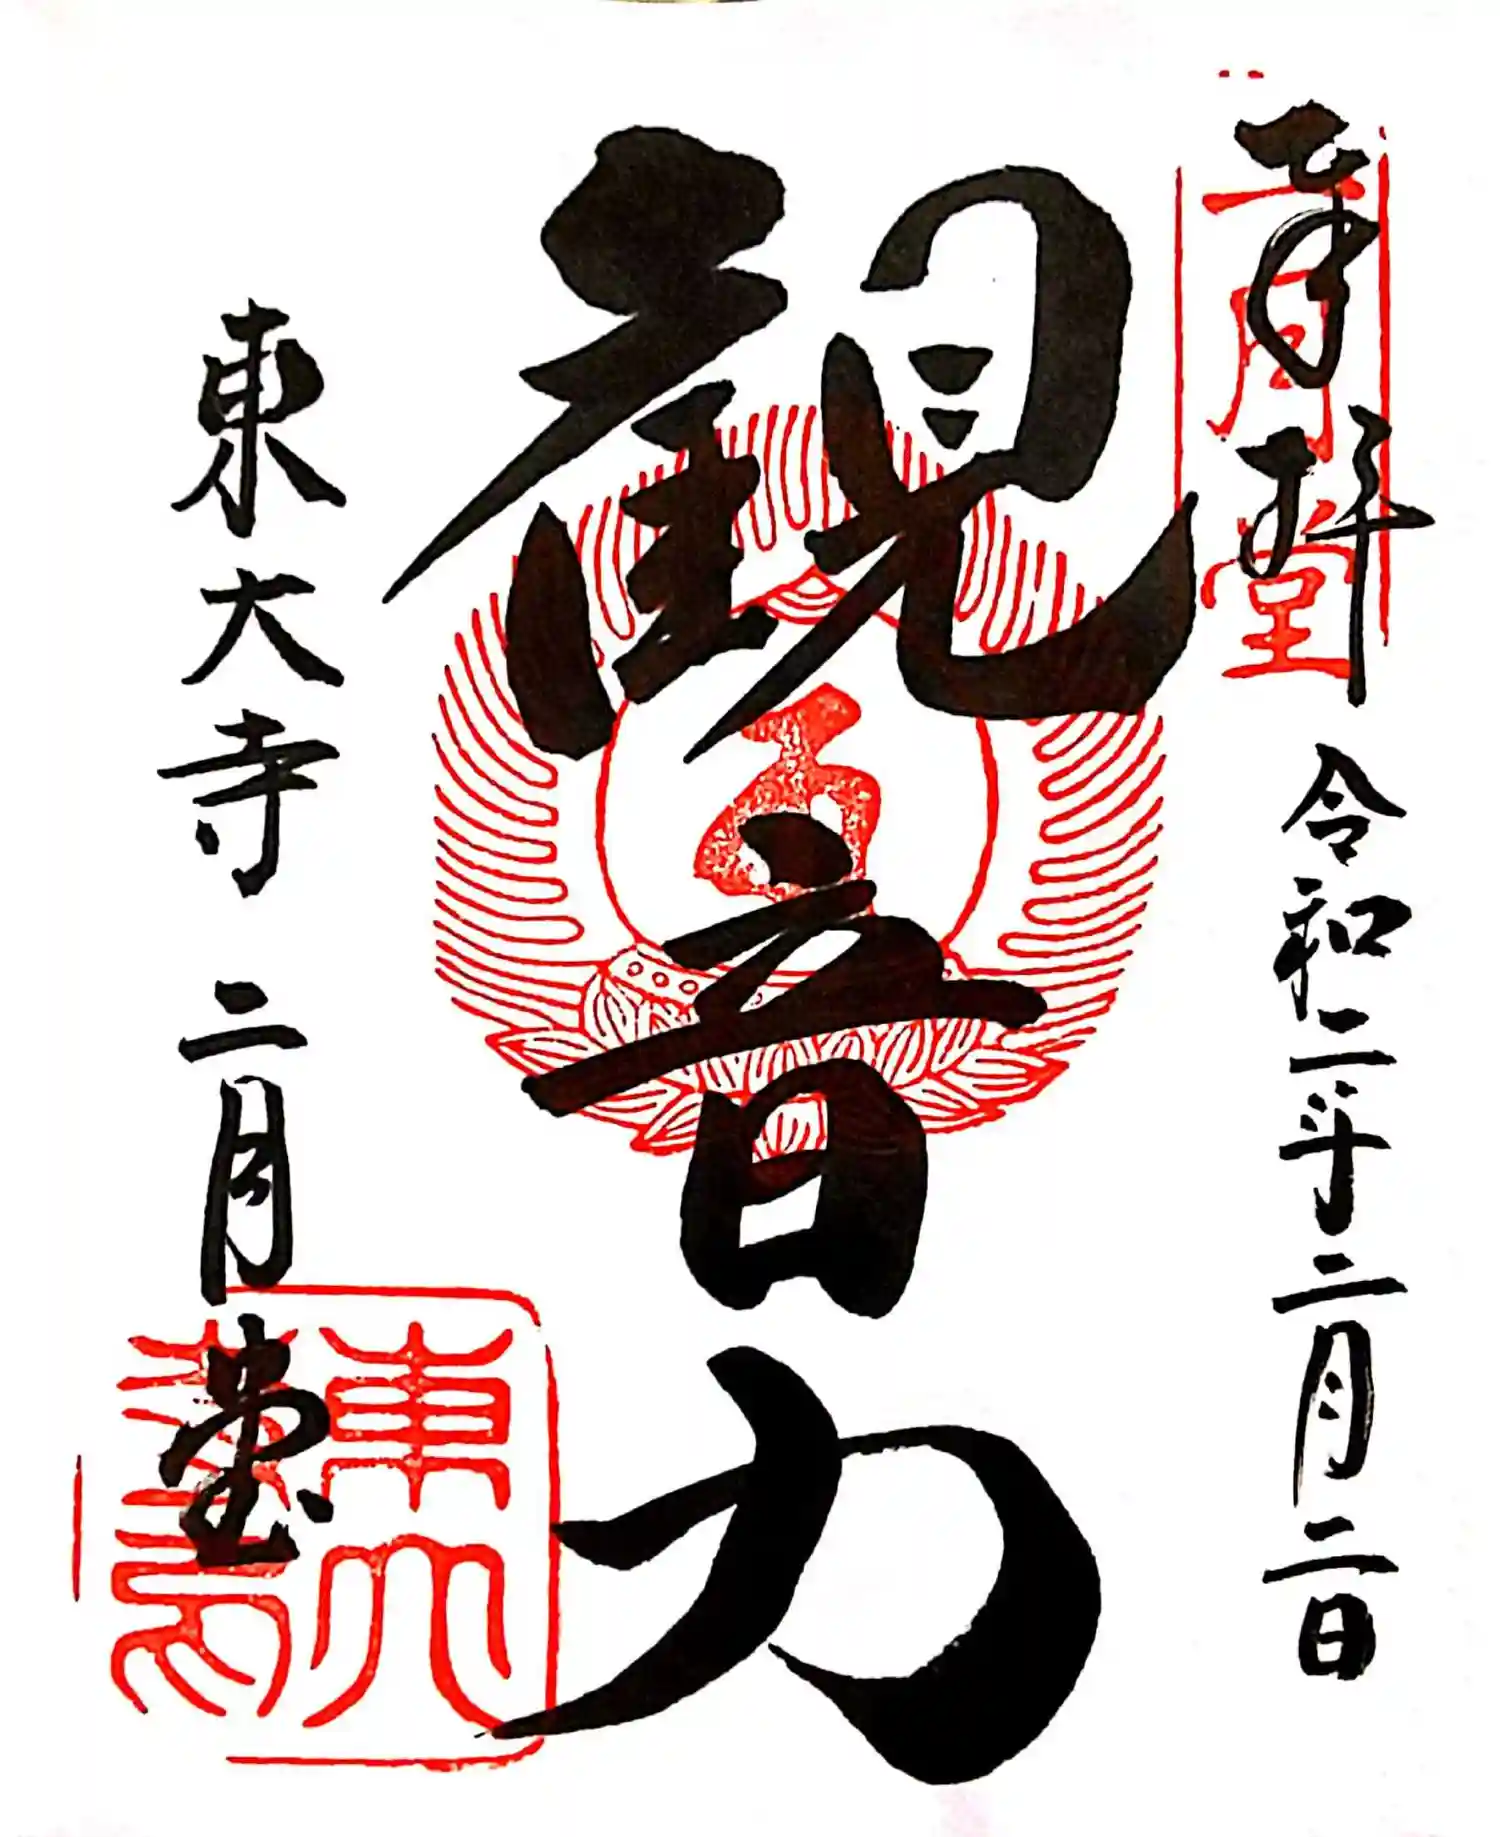 奉拝 令和二年二月二日
二月堂
観音力
東大寺 二月堂